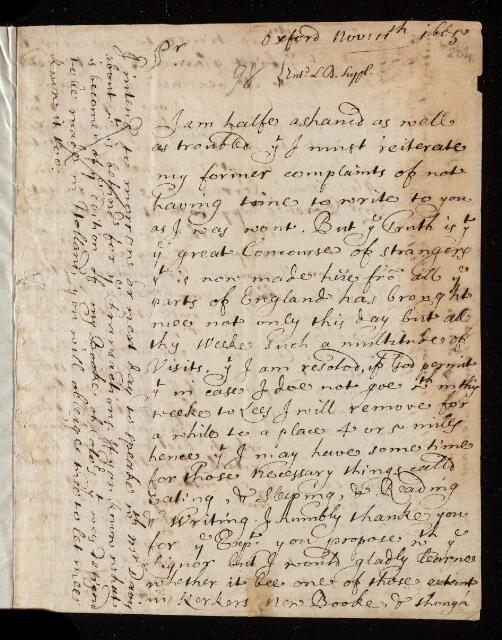 Oxford Nov: 11th 1665
204.
Sr.
98 Entd L.B. Suppl.
I am halfe ashamd as well
as troubled yt I must reiterate
my former complaints of not
having time to write to you
as I was wont. But ye Truth is yt
ye great Concourse of strangers
yt is now made hire frō all ye
parts of England has brought
mee not only this day but all
thy Weeke such a multitude of
Visits, yt I am resolvd, if God permit
yt in case I doe not goe wth in this
weeke to Lees I will remove for
a while to a place 4 or 5 miles
hence yt I may have some time
for those Necessary things calld
Eating, & Sleeping, & Reading
& Writing. I humbly thanke you
for ye Expt you propose wth ye
liquor but I would gladly learne
whether it bee one of those extant
in Kerkers New Booke, & though
I intend to morrow or next day to speake wth Mr Davis
about wt is behind for ye Transactions. If you know what
is become of ye Edition of my Booke of Colors yt was designd
to be made in Holland, you will oblidge mee to let mee
know it too.